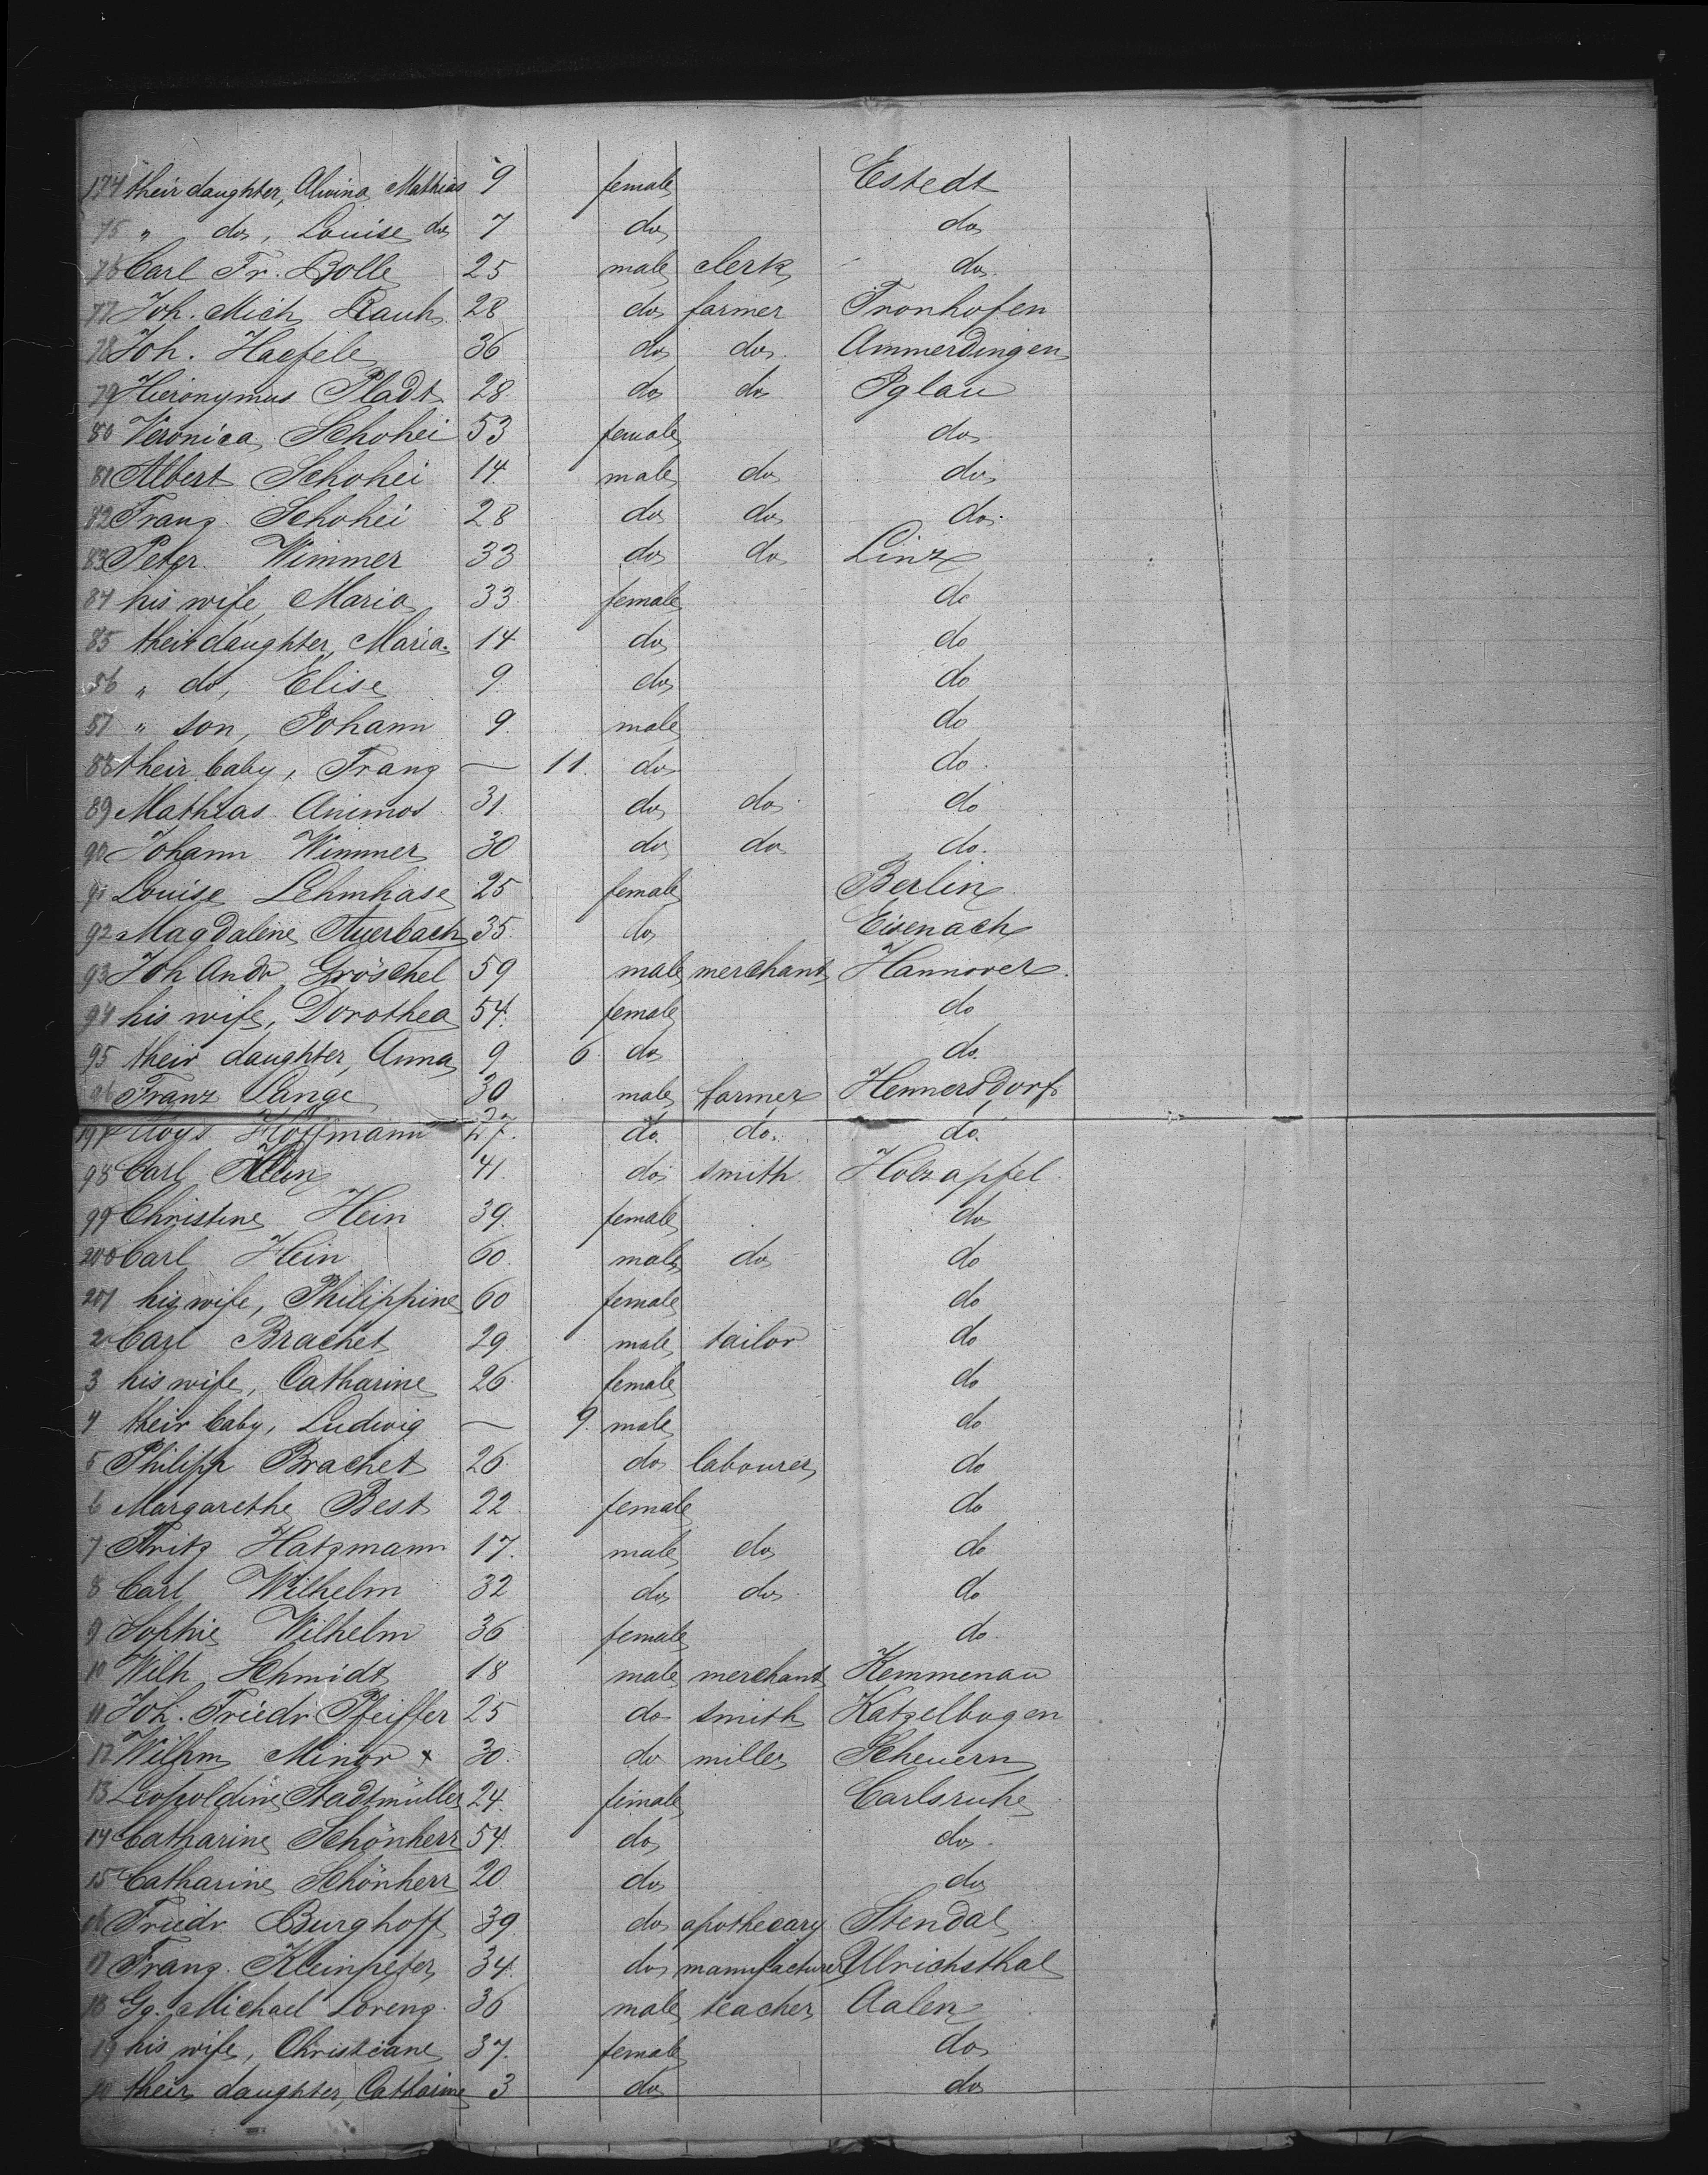 174 their daughter, Alwina Mathias 9 female Estedt
75 " do, Louise do 7 do do
76 Carl Fr. Bolle 25 male clerk do
77 Joh. Mich. Rauh 28 do farmer Fronhofen
78 Joh. Haefele 36 do do Ammerdingen
79 Hieronymus Pladt 28 do do Iglau
80 Veronica Schohei 53 female do
81 Albert Schohei 14 male do do
82 Franz Schohei 28 do do do
83 Peter Wimmer 33 do do Linz
84 his wife, Maria 33 female do
85 their daughter, Maria 14 do do
86 " do, Elise 9 do do
87 " son, Johann 9 male do
88 their baby, Franz — 11. do do
89 Mathias Animos 31 do do do
90 Johann Wimmer 30 do do do.
91 Louise Lehmhase 25 female Berlin
92 Magdalene Auerbach 35 do Eisenach
93 Joh Andr Gröschel 59 male merchant Hannover
94 his wife, Dorothea 54 female do
95 their daughter, Anna 9 6 do do
96 Franz Lange 30 male farmer Hennersdorf
197 Aloys Hoffmann 27. do. do. do.
98 Carl Klein 41 do smith Holzapfel
99 Christine Hein 39. female do
200 Carl Hein 60. male do do
201 his wife, Philippine 60 female do
2 Carl Brachet 29 male tailor do
3 his wife, Catharine 26 female do
4 their baby, Ludwig — 9 male do
5 Philipp Brachet 26 do labourer do
6 Margarethe Best 22 female do
7 Fritz Hatzmann 17. male do do
8 Carl Wilhelm 32 do do do
9 Sophie Wilhelm 36 female do
10 Wilh. Schmidt 18 male merchant Kemmenau
11 Joh. Friedr Pfeiffer 25 do smith Katzelbogen
12 Wilhm Minor x 30 do miller Scheuern
13 Leopoldine Stadtmüller 24. female Carlsruhe
14 Catharine Schönherr 54. do do
15 Catharine Schönherr 20 do do
16 Friedr Burghoff 39 do apothecary Stendal
17 Franz Kleinpeter 34. do manufacturer Ulrichsthal
18 Gg. Michael Lorenz 36 male teacher Aalen
19 his wife, Christiane 37. female do
20 their daughter, Catharine 3 do do